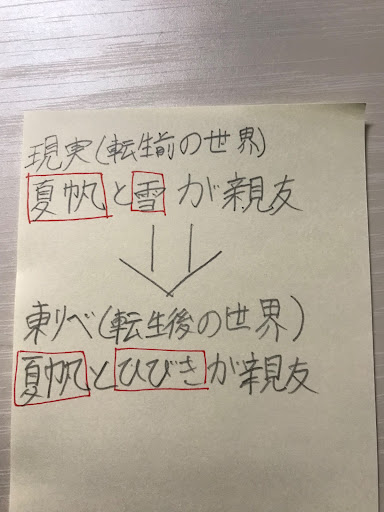 現実(転生前の世界)
夏帆と雪が親友
東リべ(転生後の世界)
夏帆とひびきが親友